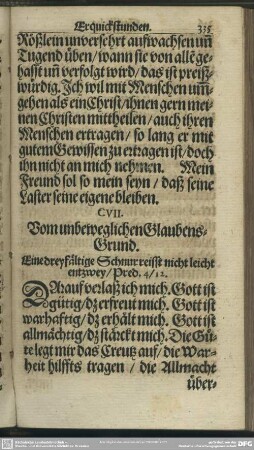 Erquickstunden. 335
Rößlein unversehrt auffwachsen uñ
Tugend üben/ wann sie von allē ge-
hasst uñ verfolgt wird/ das ist preiß-
würdig. Ich wil mit Menschen um-
gehen als ein Christ/ ihnen gern mei-
nen Christen mittheilen/ auch ihren
Menschen ertragen/ so lang er mit
gutem Gewissen zu ertragen ist/ doch
ihn nicht an mich nehmen. Mein
Freund sol so mein seyn/ daß seine
Laster seine eigene bleiben.
CVII.
Vom unbeweglichen Glaubens-
Grund.
Eine dreyfältige Schnur reisst nicht leicht
entzwey/ Pred. 4/12.
DArauf verlaß ich mich. Gott ist
gütig/ dz erfreut mich. Gott ist
warhaftig/ dz erhält mich. Gott ist
allmächtig/ dz stärckt mich. Die Gü-
te legt mir das Creutz auf/ die War-
heit hilffts tragen/ die Allmacht
über-